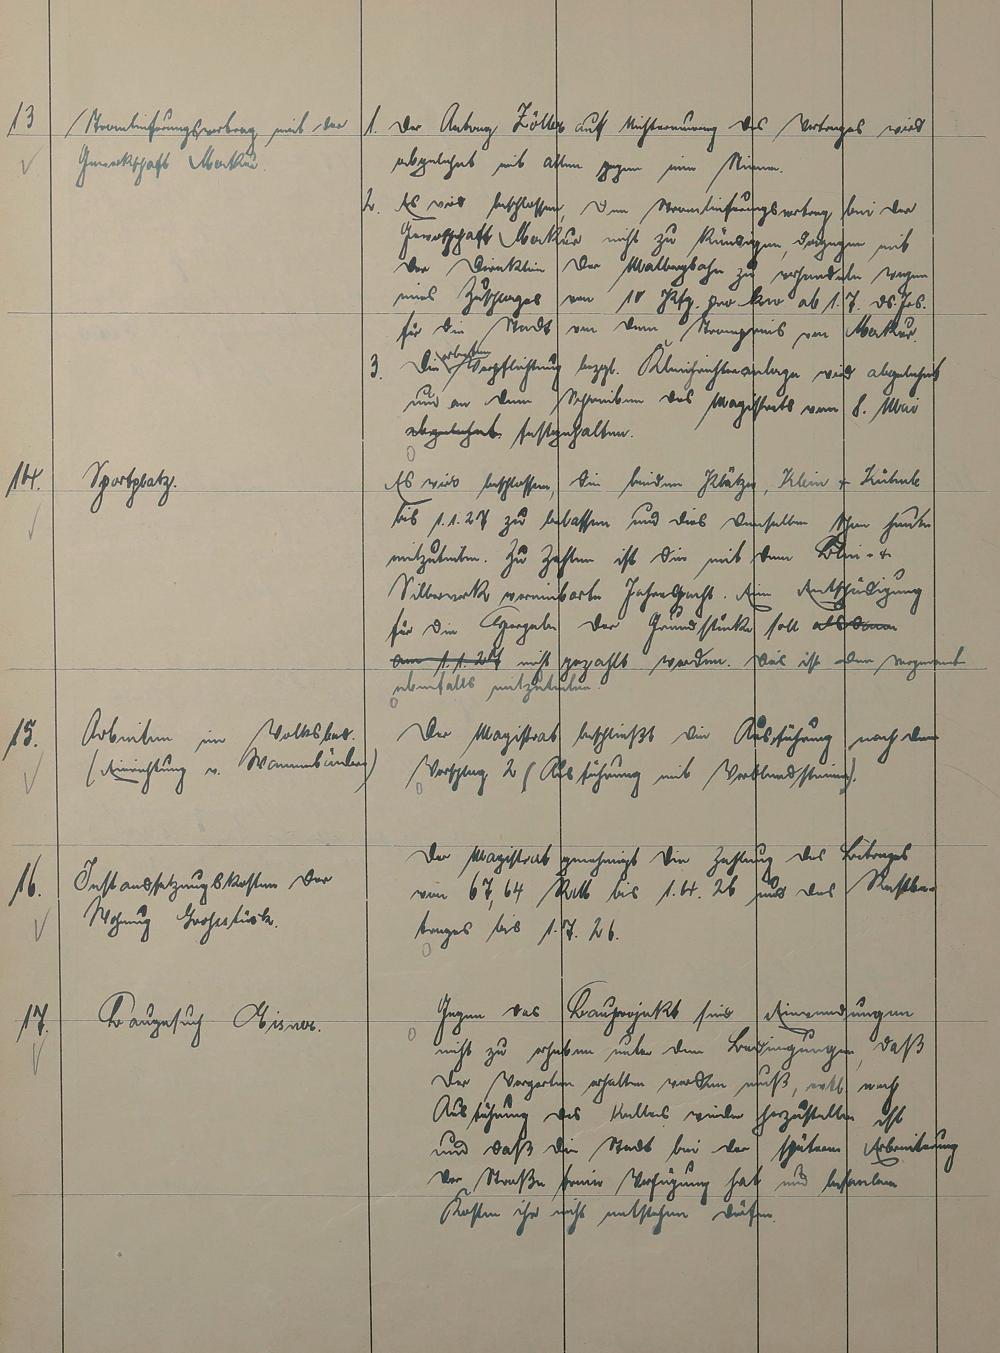 13
Stromlieferungsvertrag mit der
Gewerkschaft Merkur.
1. Der Antrag Zöller auf Nichterneuerung des Vertrages wird
abgelehnt mit allen gegen eine Stimme.
2. Es wird beschlossen, den Stromlieferungsvertrag bei der
Gewerkschaft Merkur nicht zu kündigen, dagegen mit
der Direktion der Malbergbahn zu verhandeln wegen
eines Zuschlages von 10 Pfg. pro kw ab 1.7. ds. Js.
für die Stadt von dem Strompreis von Merkur.
3. Die erbetene Verpflichtung bezgl. Kleinrichteranlage wird abgelehnt
und an dem Schreiben des Magistrats vom 8. Mai
abgelehnt festgehalten.
14.
Sportplatz.
Es wird beschlossen, die beiden Plätze, Klein +
bis 1.1.27 zu belassen und dies denselben schon heute
mitzuteilen. Zu zahlen ist die mit dem Blei- +
Silberwerk vereinbarte Jahrespacht. Eine Entschädigung
für die Hergabe der Grundstücke soll alsdann
am 1.1.27 nicht gezahlt werden. Dies ist
ebenfalls mitzuteilen.
15.
Arbeiten im Volksbad.
(Einrichtung v. Wannenbädern)
Der Magistrat beschließt die Ausführung nach dem
Vorschlag 2 (Ausführung mit Verblendsteinen).
16.
Instandsetzungskosten der
Wohnung Grohestück.
Der Magistrat genehmigt die Zahlung des Beitrages
von 67,64 RM bis 1.4.26 und des Restbe-
trages bis 1.7.26.
17.
Baugesuch Eisner.
Gegen das Bauprojekt sind Einwendungen
nicht zu erheben unter den Bedingungen, daß
der Vorgarten erhalten werden muß, evtl. nach
Ausführung des Kellers wieder herzustellen ist
und daß die Stadt bei der späteren Erbreiterung
der Straße freie Verfügung hat und besondere
Kosten ihr nicht entstehen dürfen.